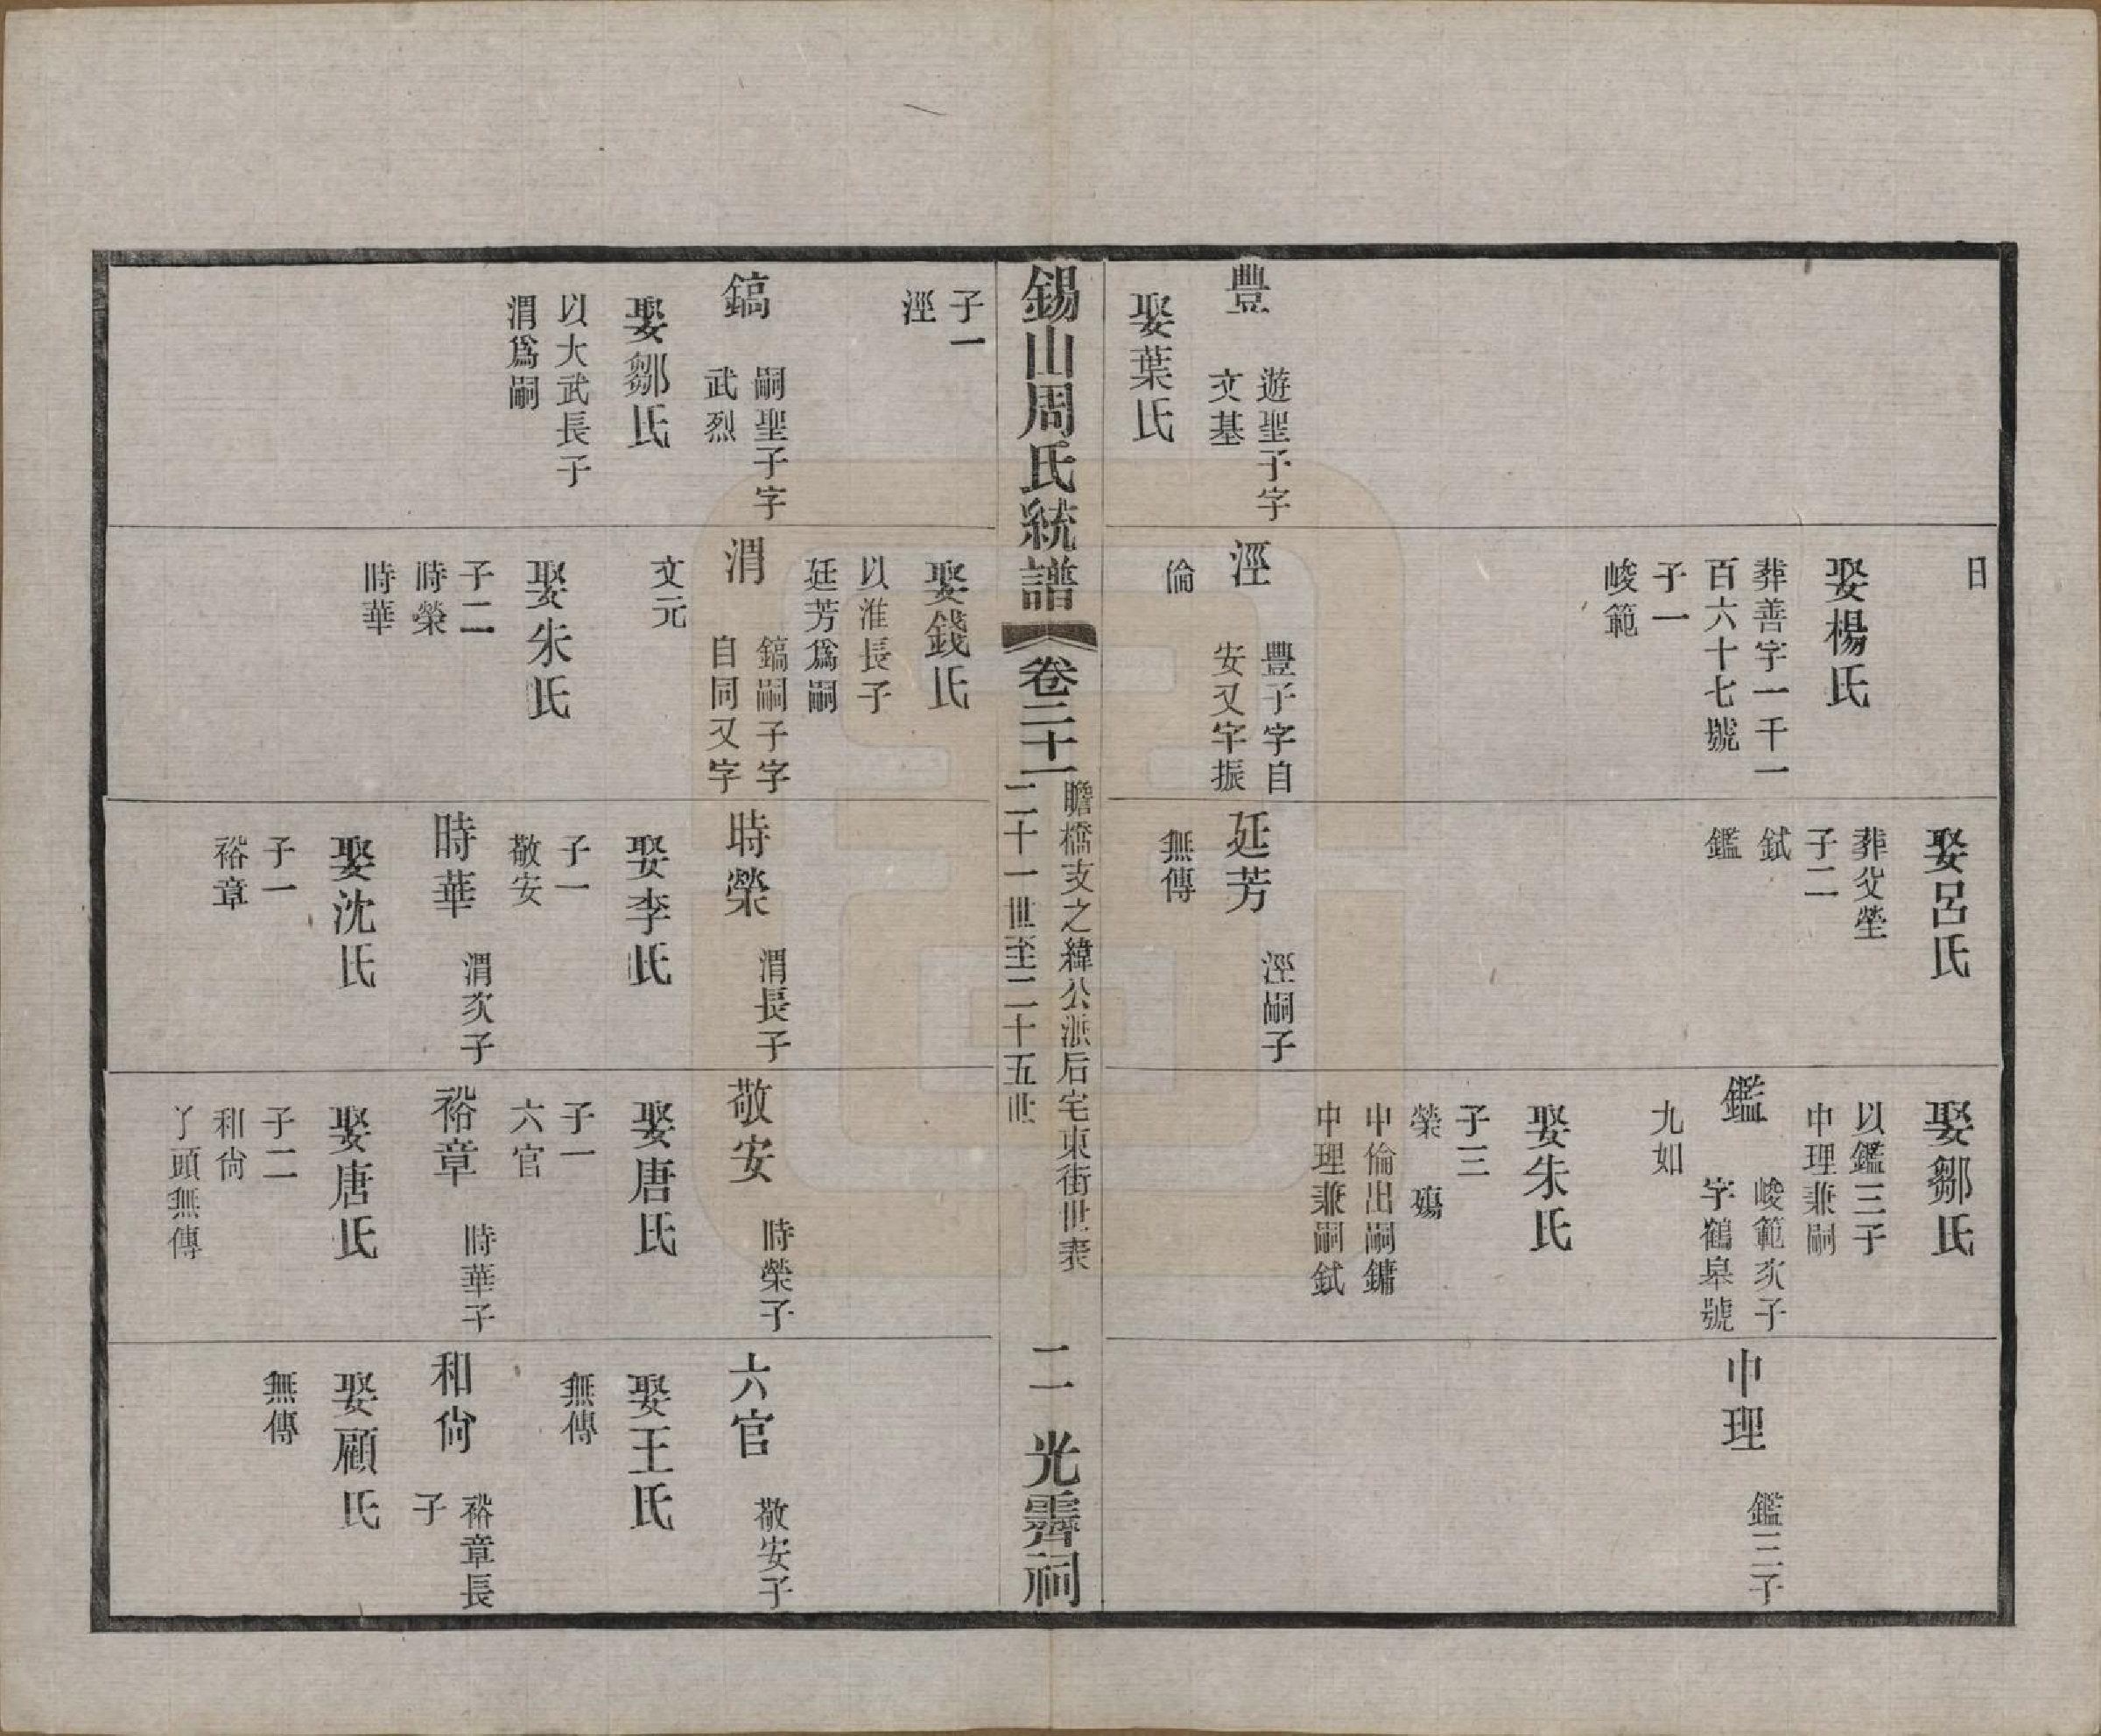 豐
遊聖子字
文基
娶葉氏
日
娶楊氏
葬善字一千一
百六十七號
子一
峻範
涇
豐子字自
安又字振
倫
娶呂氏
葬父塋
子二
鉽
鑑
延芳
涇嗣子
無傳
娶鄒氏
以鑑三子
中理兼嗣
鑑
峻範次子
字鶴皋號
九如
娶朱氏
子三
榮 殤
中倫出嗣鏞
中理兼嗣鉽
中理
鑑三子
錫山周氏統譜
卷二十一
瞻橋支之緯公派后宅東街世表
二十一世至二十五世
二
光霽祠
子一
涇
鎬
嗣聖子字
武烈
娶鄒氏
以大武長子
渭爲嗣
娶錢氏
以淮長子
廷芳爲嗣
渭
鎬嗣子字
自同又字
文元
娶朱氏
子二
時榮
時華
時榮
渭長子
娶李氏
子一
敬安
時華
渭次子
娶沈氏
子一
裕章
敬安
時榮子
娶唐氏
子一
六官
裕章
時華子
娶唐氏
子二
和尙
丫頭無傳
六官
敬安子
娶王氏
無傳
和尙
裕章長
子
娶顧氏
無傳